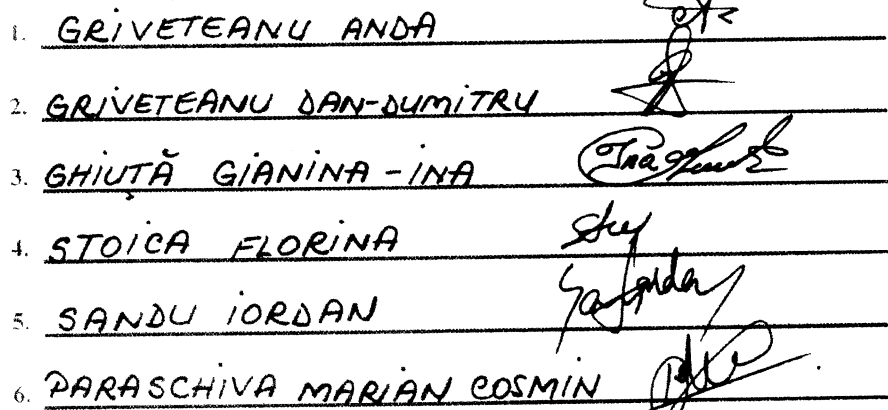 1. GRIVETEANU ANDA
2. GRIVETEANU DAN-DUMITRU
3. GHIUȚĂ GIANINA-INA
4. STOICA FLORINA
5. SANDU IORDAN
6. PARASCHIVA MARIAN COSMIN